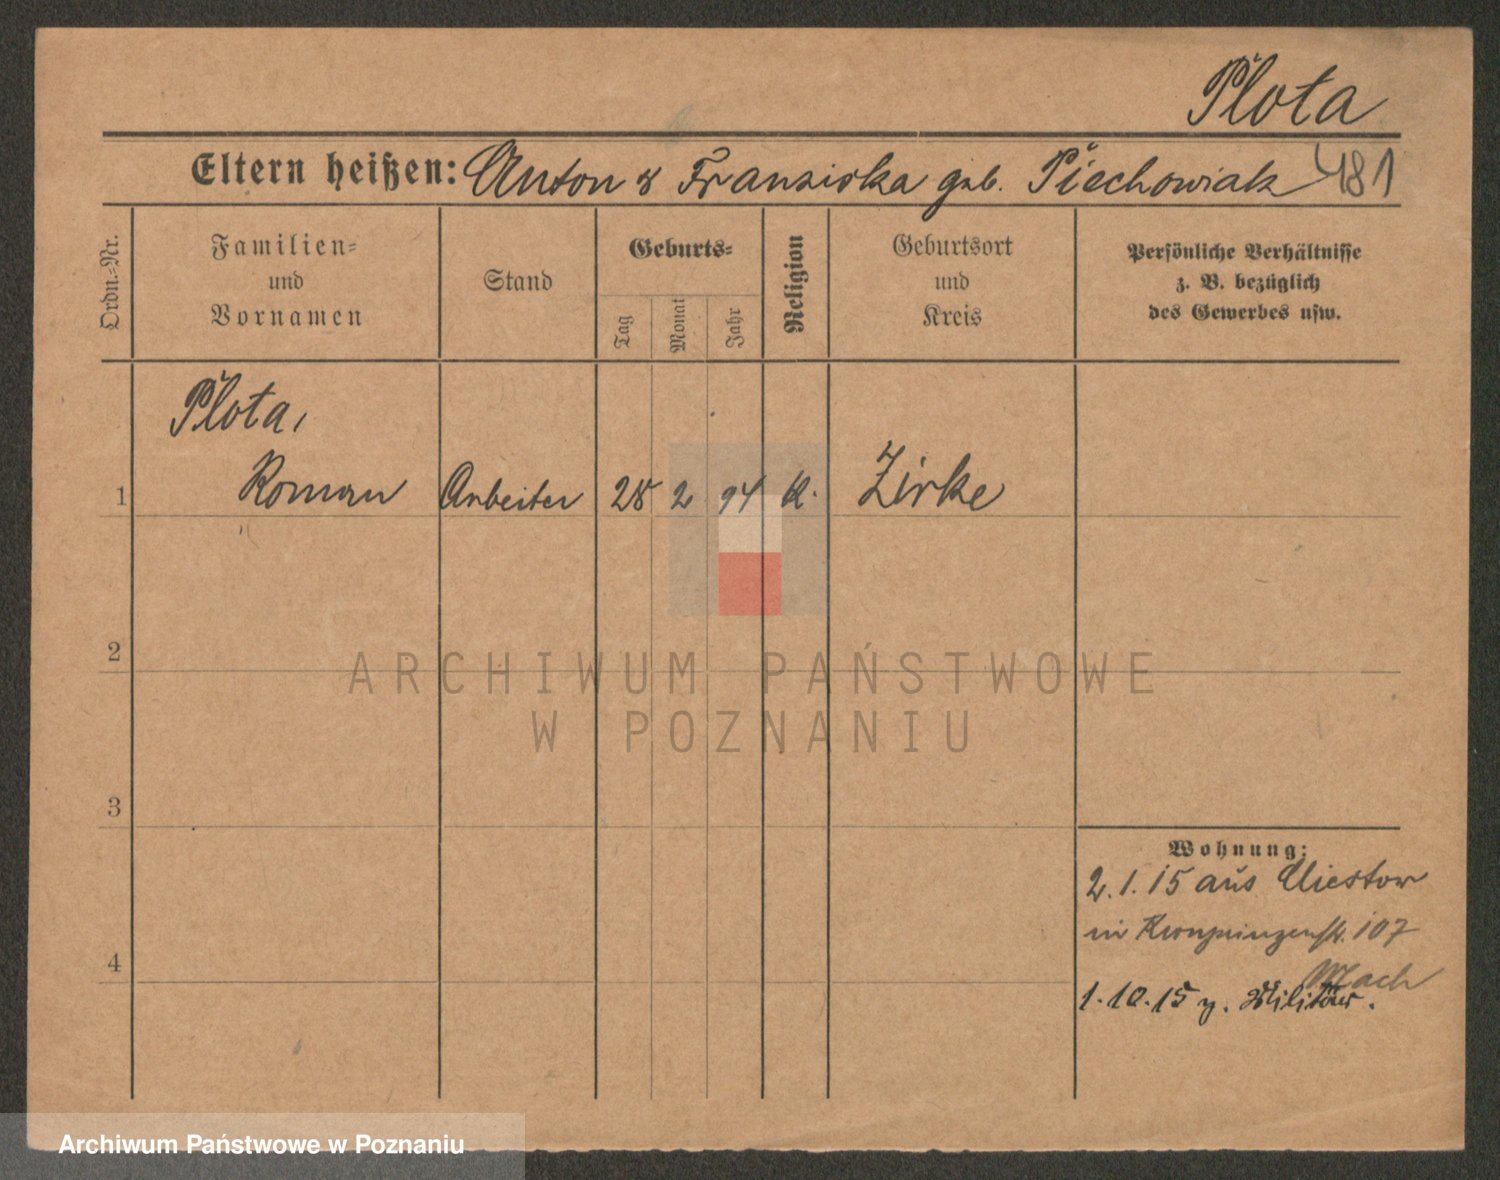 Plota
Eltern heißen: Anton & Franziska geb. Piechowiak 481
Ordn.=Nr.
Familien=
und
Vornamen
Stand
Geburts=
Tag
Monat
Jahr
Religion
Geburtsort
und
Kreis
Persönliche Verhältnisse
z. B. bezüglich
des Gewerbes usw.
Plota,
1 Roman Arbeiter 28 2 94 K. Zirke
2
3
4
Wohnung:
2.1.15 aus
in Kronprinzenstr. 107
Mach
1.10.15 z. Militär.
ARCHIWUM PAŃSTWOWE
W POZNANIU
Archiwum Państwowe w Poznaniu